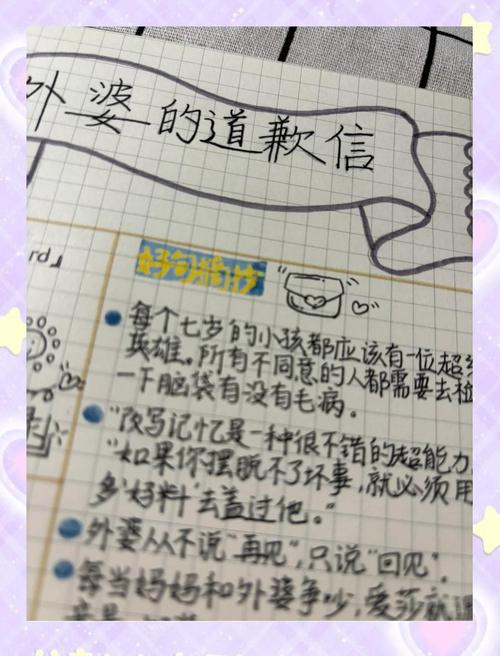 外婆的道歉信
rd」
好句摘抄
每个七岁的小孩都应该有一位超
英雄。所有不同意的人都需要去检
一下脑袋有没有毛病。
"改写记忆是一种很不错的超能力
"如果你摆脱不了坏事,就必须用
多"好料"去盖过他。"
外婆从不说"再见",只说"回见"。
每当妈妈和外婆争吵,爱莎就